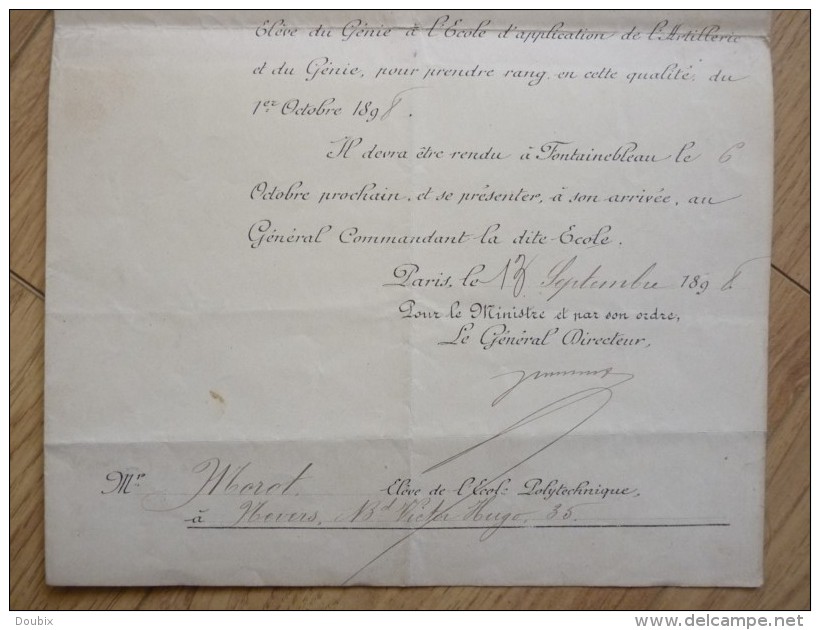 Elève du Génie à l'Ecole d'application de l'Artillerie
et du Génie, pour prendre rang en cette qualité, du
1er Octobre 1898.
Il devra être rendu à Fontainebleau le 6
Octobre prochain, et se présenter, à son arrivée, au
Général Commandant la dite Ecole.
Paris, le Septembre 1898
Pour le Ministre et par son ordre,
Le Général Directeur,
Mr Morot. Elève de l'Ecole Polytechnique,
à Nevers, Bd Victor Hugo, 35.
Doubix
www.delcampe.net